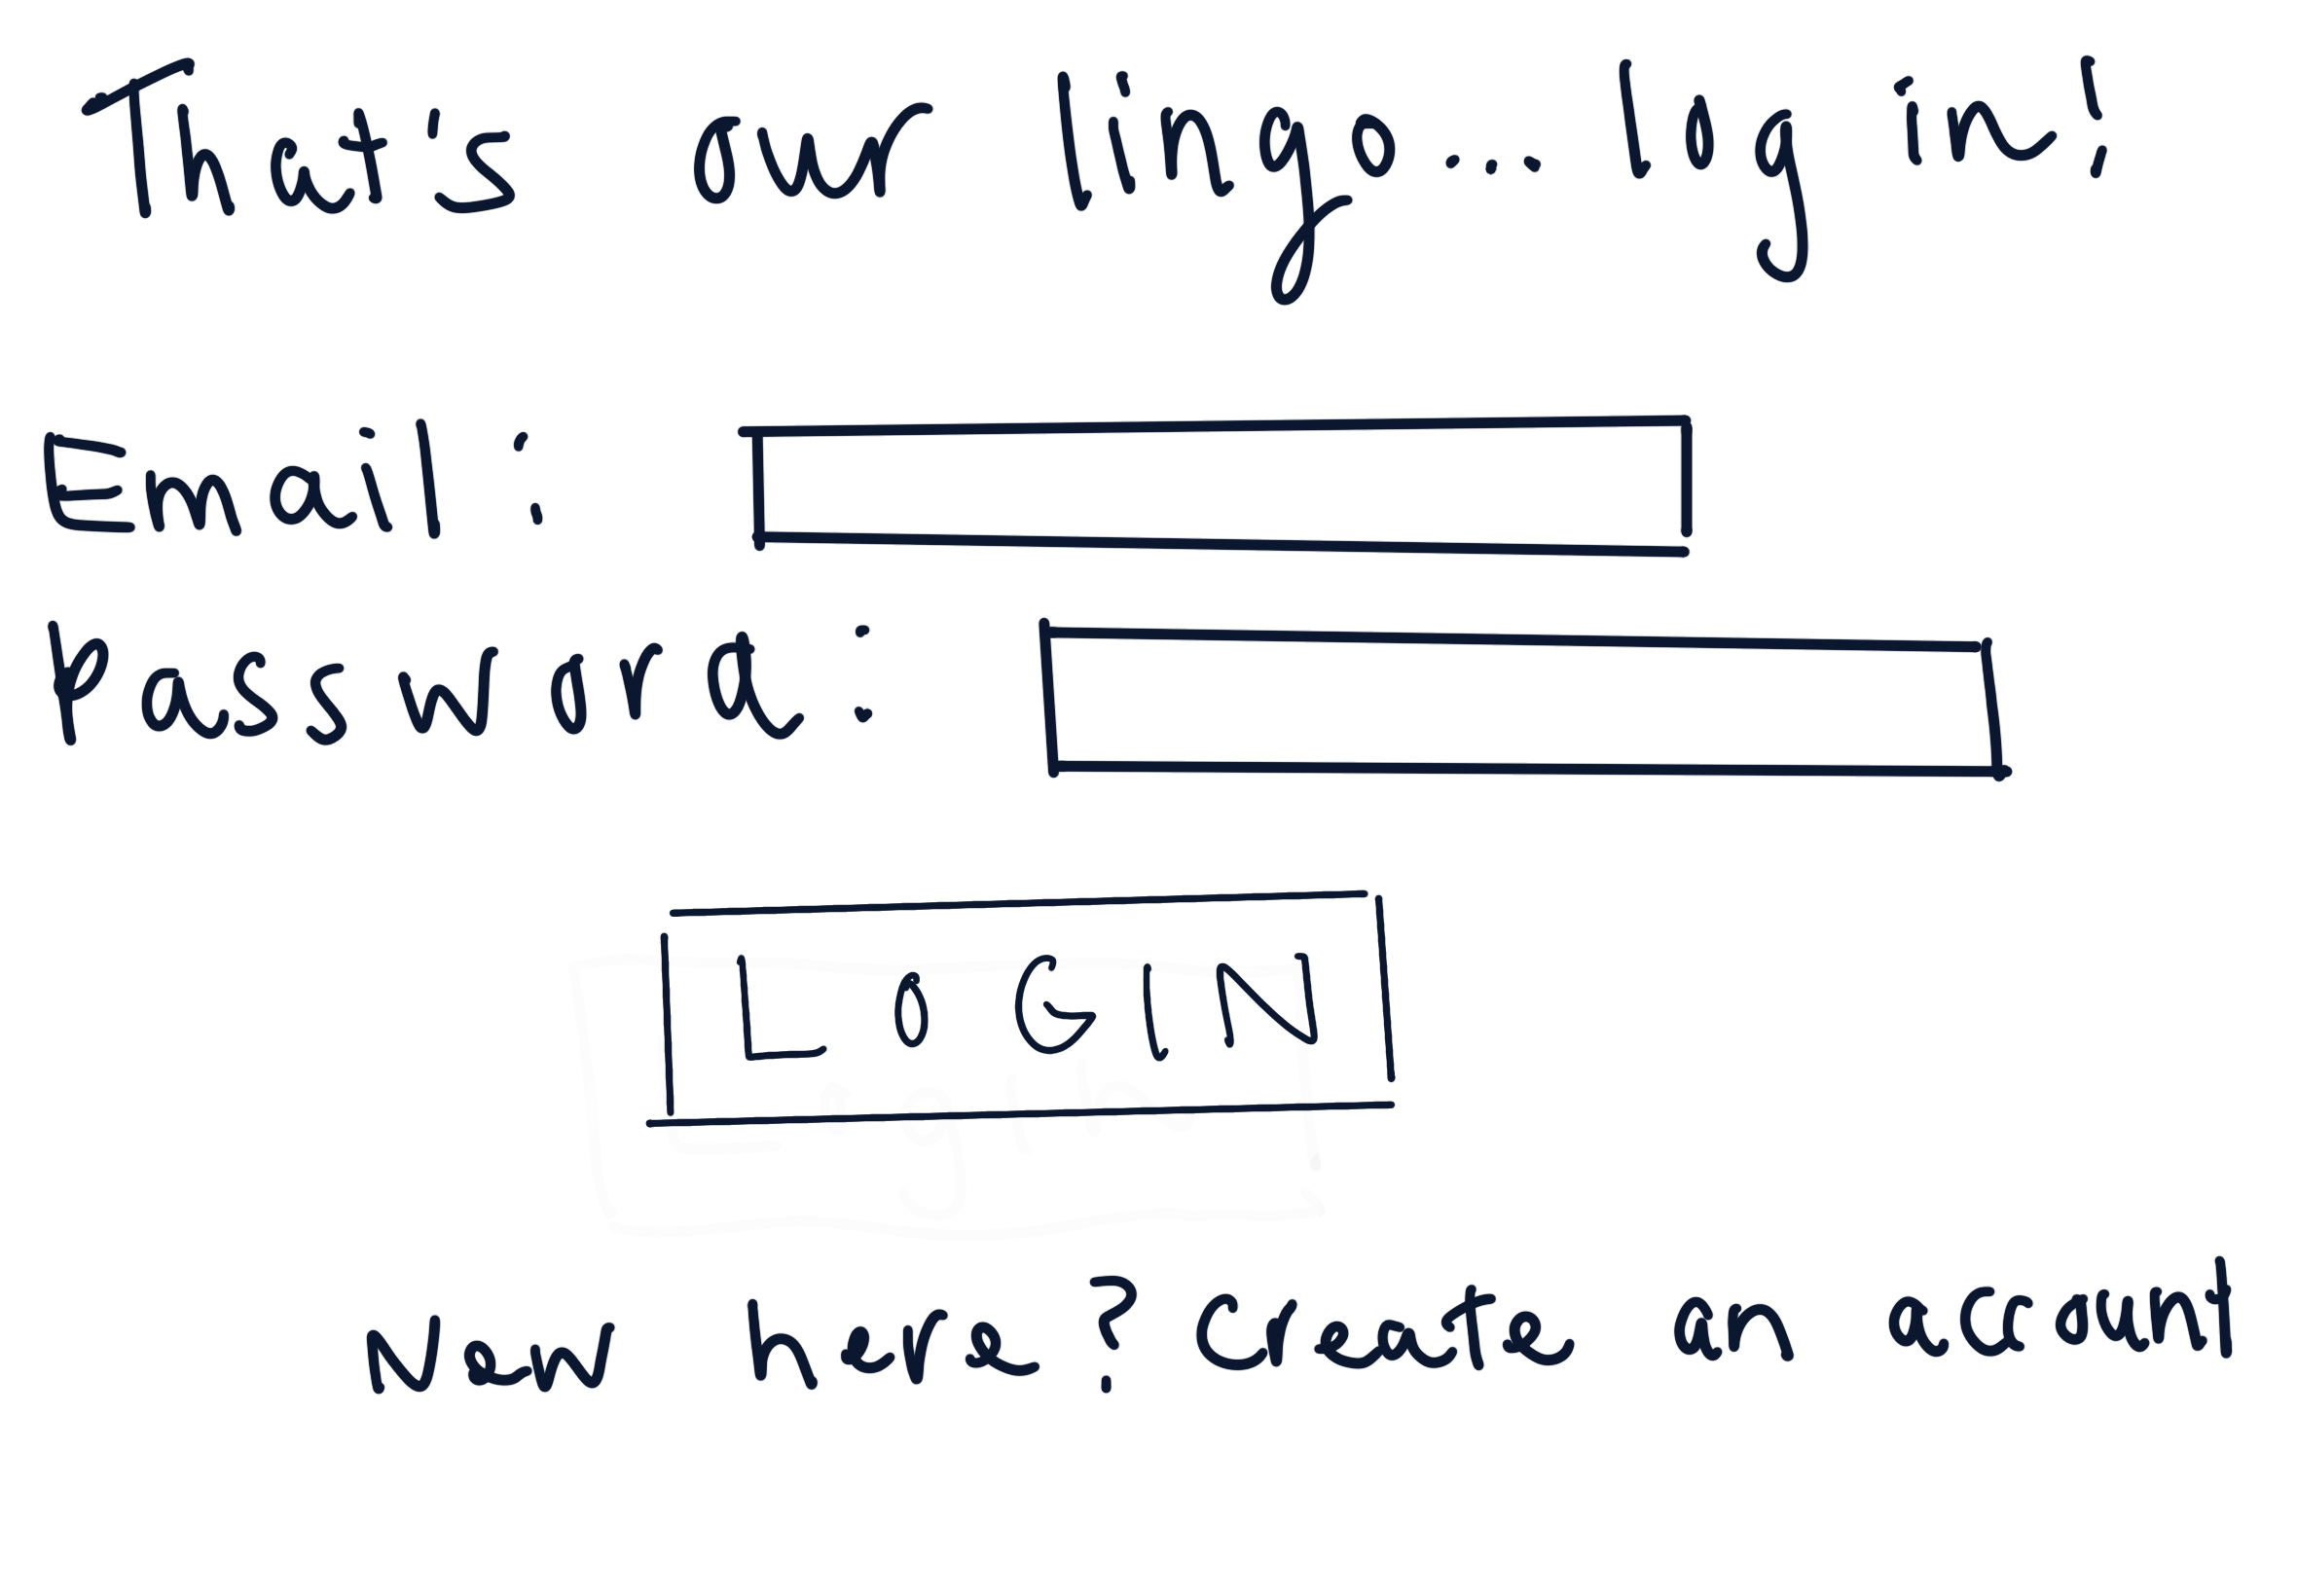 That's our lingo... log in!
Email:
Password:
LOGIN
Login
New here? Create an account